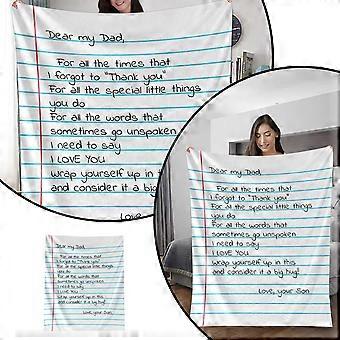 Dear my Dad,
For all the times that
I forgot to "Thank you"
For all the special little things
you do
For all the words that
sometimes go unspoken
I need to say
I LOVE YOU
Wrap yourself up in this
and consider it a big hug!
Love,
Dear my Dad,
For all the times that
I forgot to "Thank you"
For all the special little things
you do
For all the words that
sometimes go unspoken
I need to say
I LOVE YOU
Wrap yourself up in this
and consider it a big hug!
Love, your Son
Dear my Dad,
For all the times that
I forgot to "Thank you"
For all the special little things
you do
For all the words that
sometimes go unspoken
I need to say
I LOVE YOU
Wrap yourself up in this
and consider it a big hug!
Love, your Son